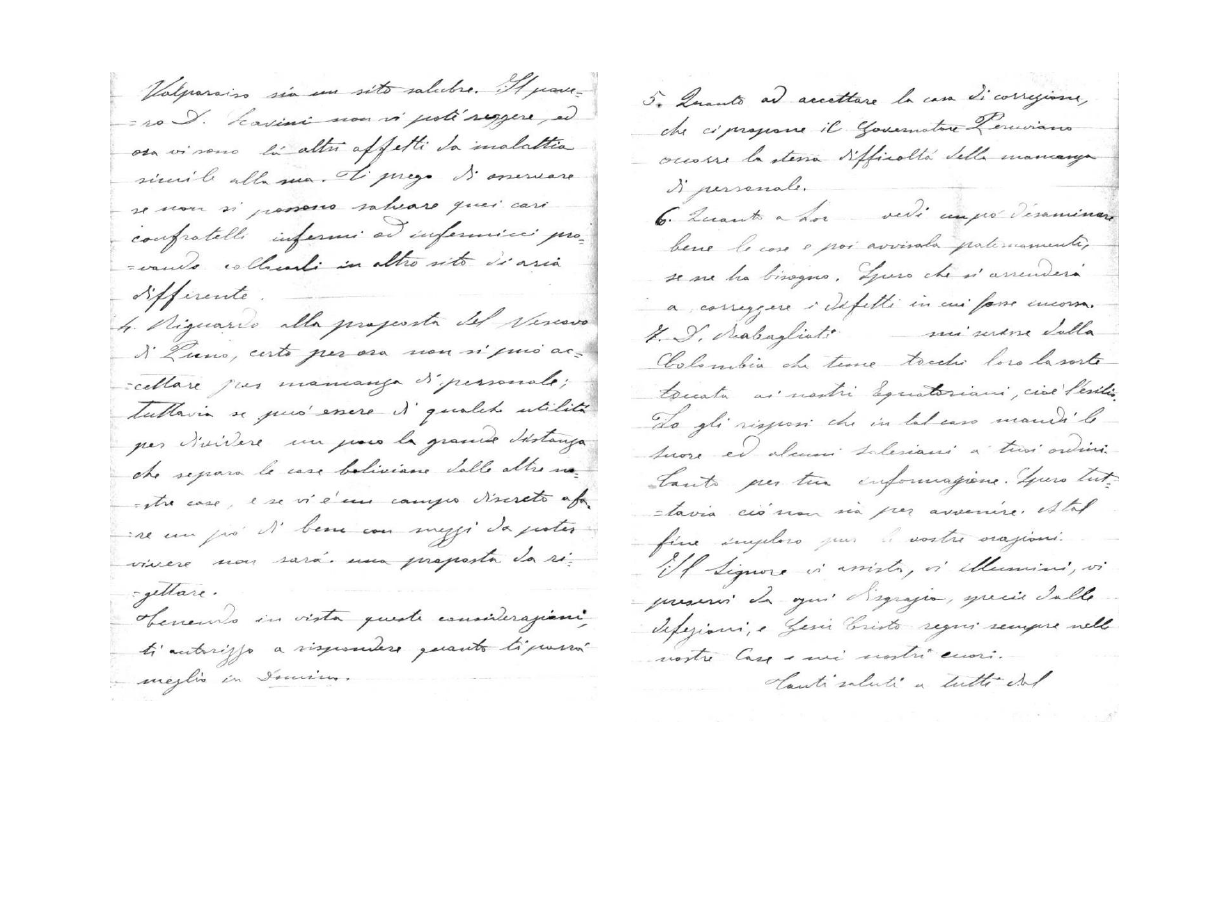 Valparaiso sia un sito salubre. Il pove=
=ro D. Scavini non vi poté reggere, ed
ora vi sono là altri affetti da malattia
simile alla sua. Ti prego di osservare
se non si possono salvare quei cari
confratelli infermi ed infermicci pro=
=vando collocarli in altro sito di aria
differente.
4. Riguardo alla proposta del Vescovo
di Puno, certo per ora non si può ac=
=cettare per mancanza di personale;
tuttavia se può essere di qualche utilità
per dividere un poco la grande distanza
che separa le case boliviane dalle altre no=
=stre case, e se vi é un campo discreto a fa=
=re un pò di bene con mezzi da poter
vivere non sarà una proposta da ri=
=gettare.
Tenendo in vista queste considerazioni,
ti autorizzo a rispondere quanto ti parrà
meglio in Domino.
5. Quanto ad accettare la casa di correzione,
che ci propone il Governatore Peruviano
occorre la stessa difficoltà della mancanza
di personale.
6. Quanto a vedi un pò d'esaminare
bene le cose e poi avvisala paternamente,
se ne ha bisogno. Spero che si arrenderà
a correggere i difetti in cui fosse incorsa.
7. D. Rabagliati mi scrisse dalla
Colombia che teme tocchi loro la sorte
toccata ai nostri Equatoriani, cioé l'esilio.
Io gli risposi che in tal caso mandi le
suore ed alcuni salesiani a tuoi ordini.
Tanto per tua informazione. Spero tut=
=tavia ciò non sia per avvenire. A tal
fine imploro pur le vostre orazioni.
Il Signore vi assista, vi illumini, vi
preservi da ogni disgrazia, specie dalle
defezioni, e Gesù Cristo regni sempre nelle
nostre Case e nei nostri cuori.
Tanti saluti a tutti dal